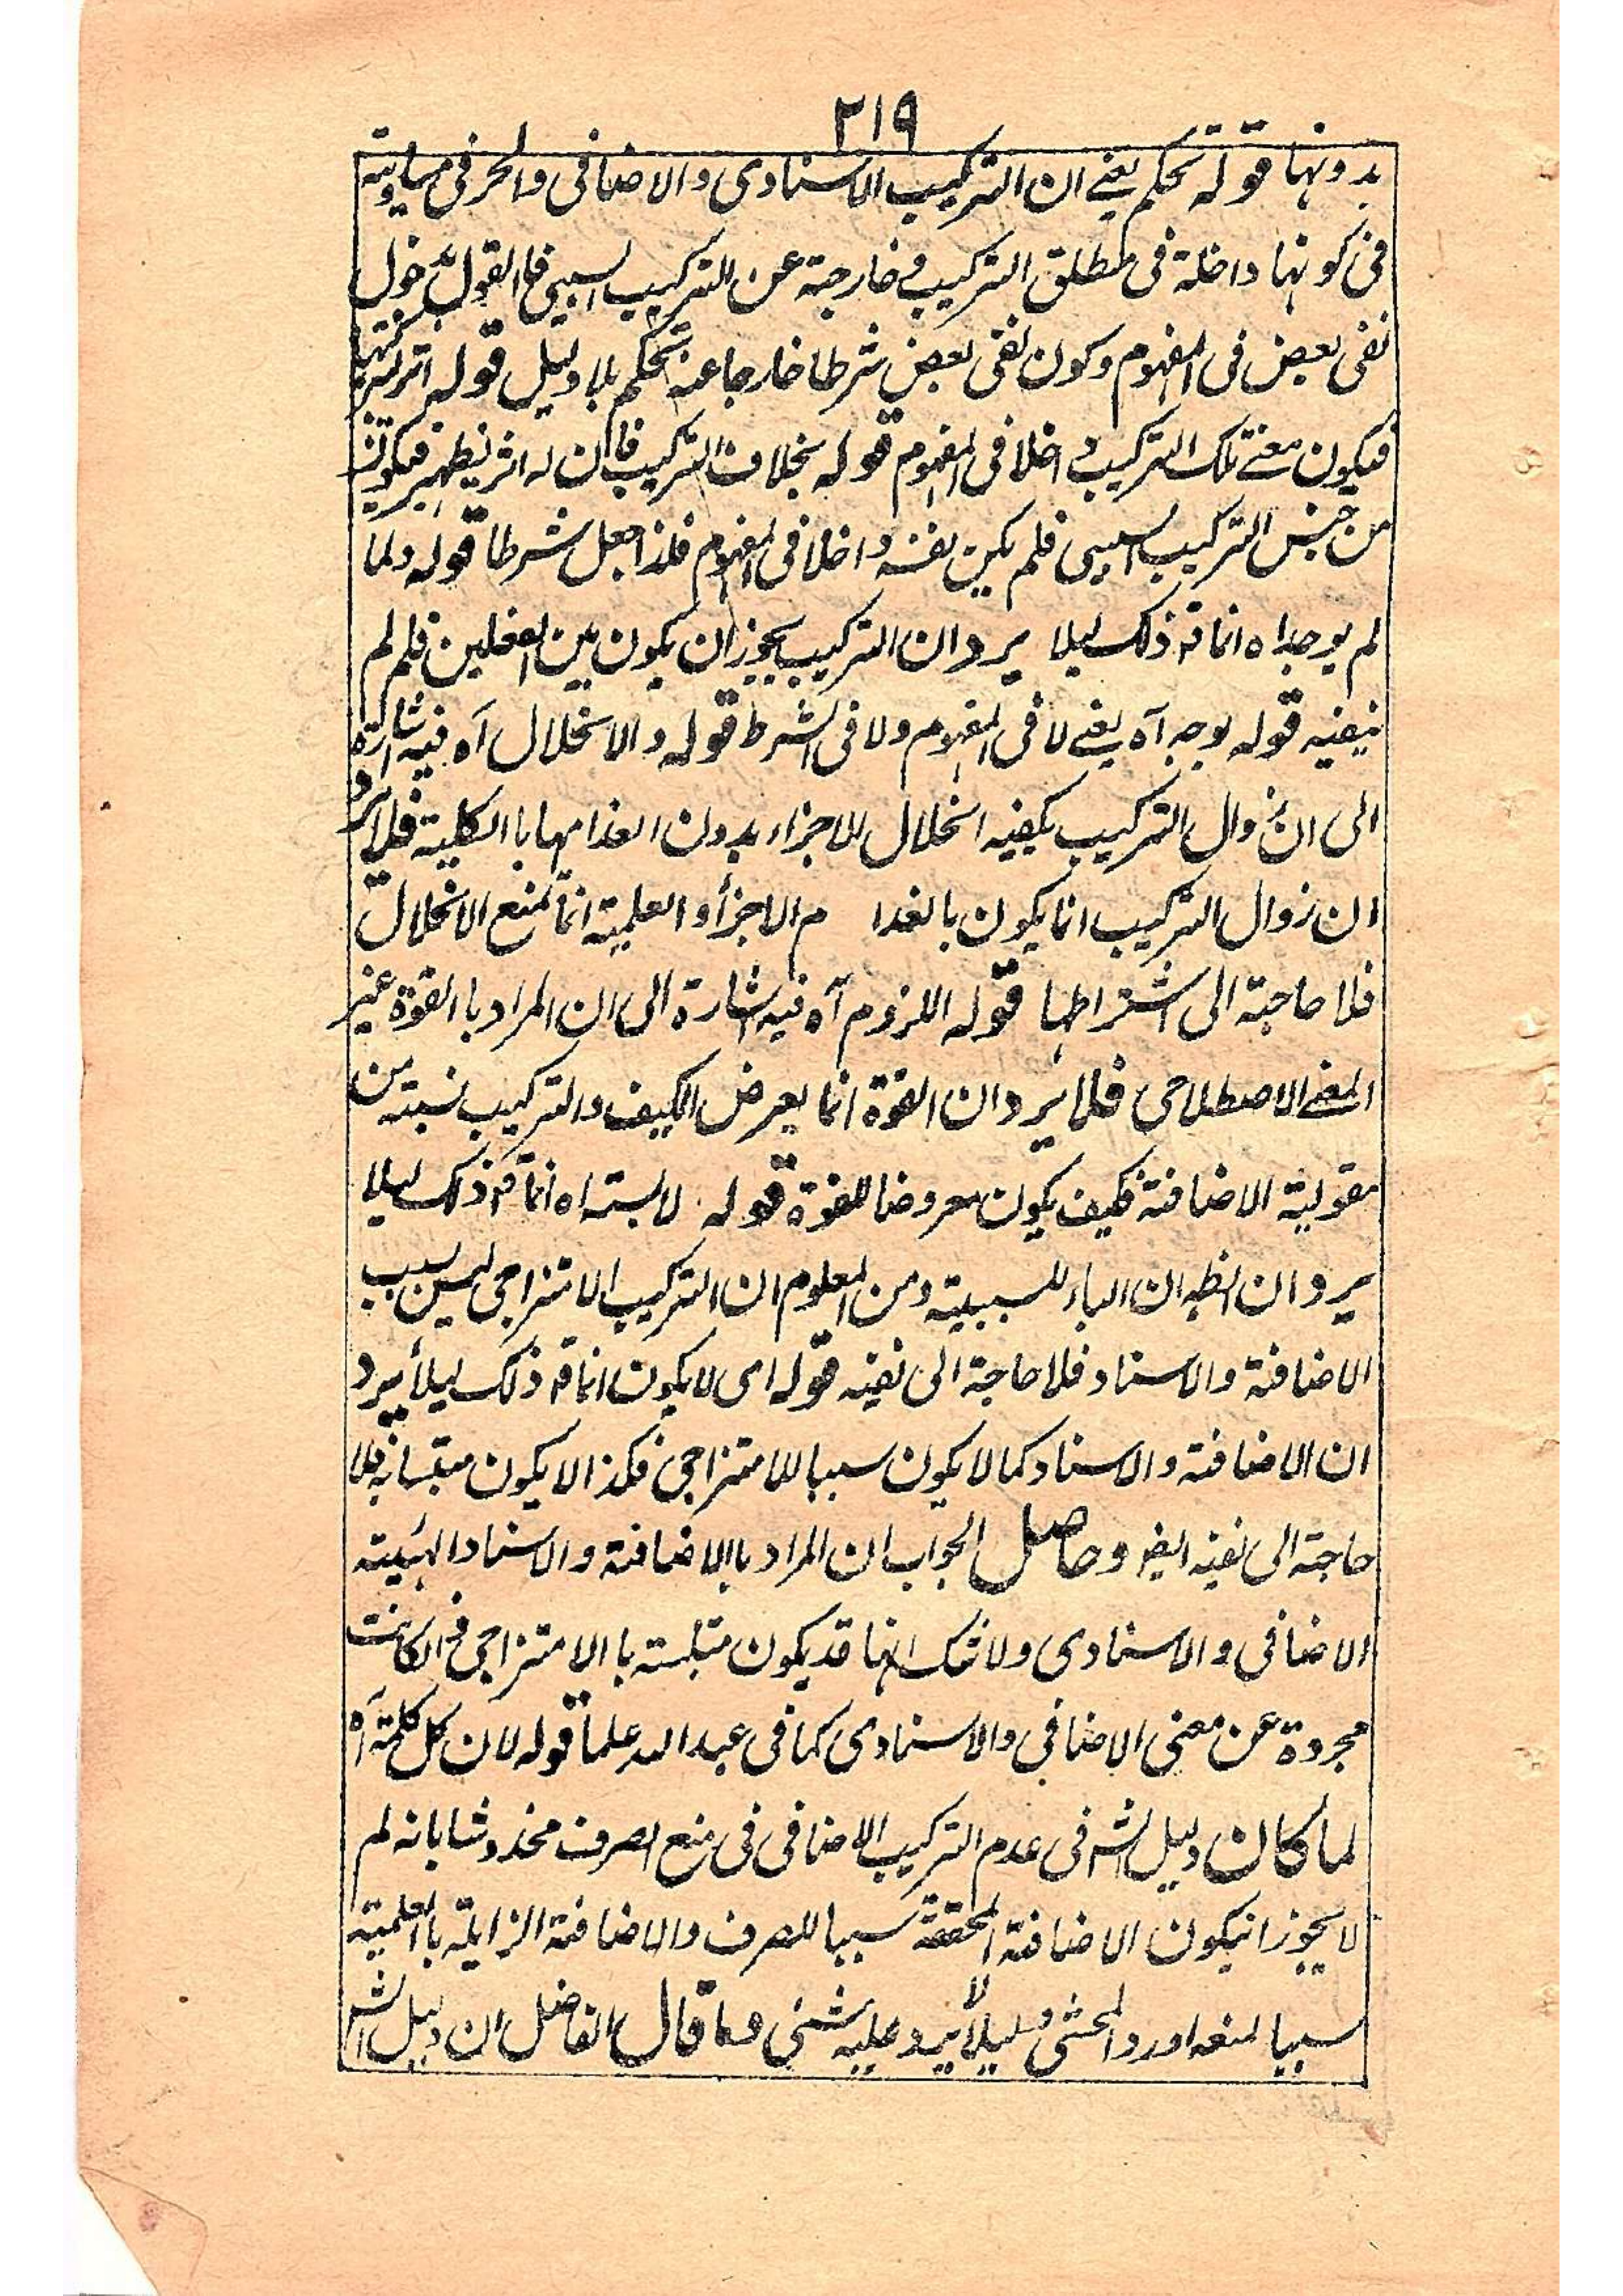 ٢١٩
بدونها قوله تحكم يعنے ان التركيب الاسنادى والاضافى والحرفى مساوية
فى كونها داخلة فى مطلق التركيب خارجة عن التركيب السببى فالقول بدخول
نفى بعض فى المفهوم وكون نفى بعض شرطا خارجا عنه تحكم بلا دليل قوله
فيكون معنے تلك التركيب داخلا فى المفهوم قوله بخلاف التركيب فان له اثر يظهر فيكون
من جنس التركيب السببى فلم يكن نفيه داخلا فى المفهوم فلذا جعل شرطا قوله ولما
لم يوجد اه انما قه ذلك ليلا يرد ان التركيب يجوز ان يكون بين الفعلين فلم لم
ينفيه قوله بوجه آه يعنے لا فى المفهوم ولا فى الشرط قوله والانحلال آه فيه اشارة
الى ان زوال التركيب يكفيه انحلال الاجزاء بدون انعدامها باالكلية فلا يرد
ان زوال التركيب انما يكون بانعدا م الاجزأ والعلمية انما تمنع الانحلال
فلا حاجة الى اشتراطها قوله اللزوم آه فيه اشارة الى ان المراد باالقوة غير
المعنے الاصطلاحى فلا يرد ان القوة انما يعرض الكيف والتركيب نسبته من
مقولية الاضافة فكيف يكون معروضا للقوة قوله لابسته اه انما قه ذلك ليلا
يرد ان الظه ان الباء للسببية ومن المعلوم ان التركيب الامتزاجى ليس بسبب
الاضافة والاسناد فلا حاجة الى نفيه قوله اى لا يكون انما قه ذلك ليلأ يرد
ان الاضافة والاسناد كما لا يكون سببا للامتزاجى فكذا لا يكون متلبسا به فلا
حاجة الى نفيه ايضه وحاصل الجواب ان المراد باالاضافة والاسناد الهيئية
الاضافى والاسنادى ولا شك انها قد يكون متلبسته باالامتزاجى ان كانت
مجردة عن معنى الاضافى والاسنادى كما فى عبد الله علما قوله لان كل كلمة آه
لما كان دليل الشه فى عدم التركيب الاضافى فى منع الصرف مخدوشا بانه لم
لا يجوز انيكون الاضافة المحققة سببا للصرف والاضافة الزايلة باالعلمية
سببا لمنعه اورد المحشى دليلا لا يرد عليه شئى وما قال الفاضل ان دليل الشه